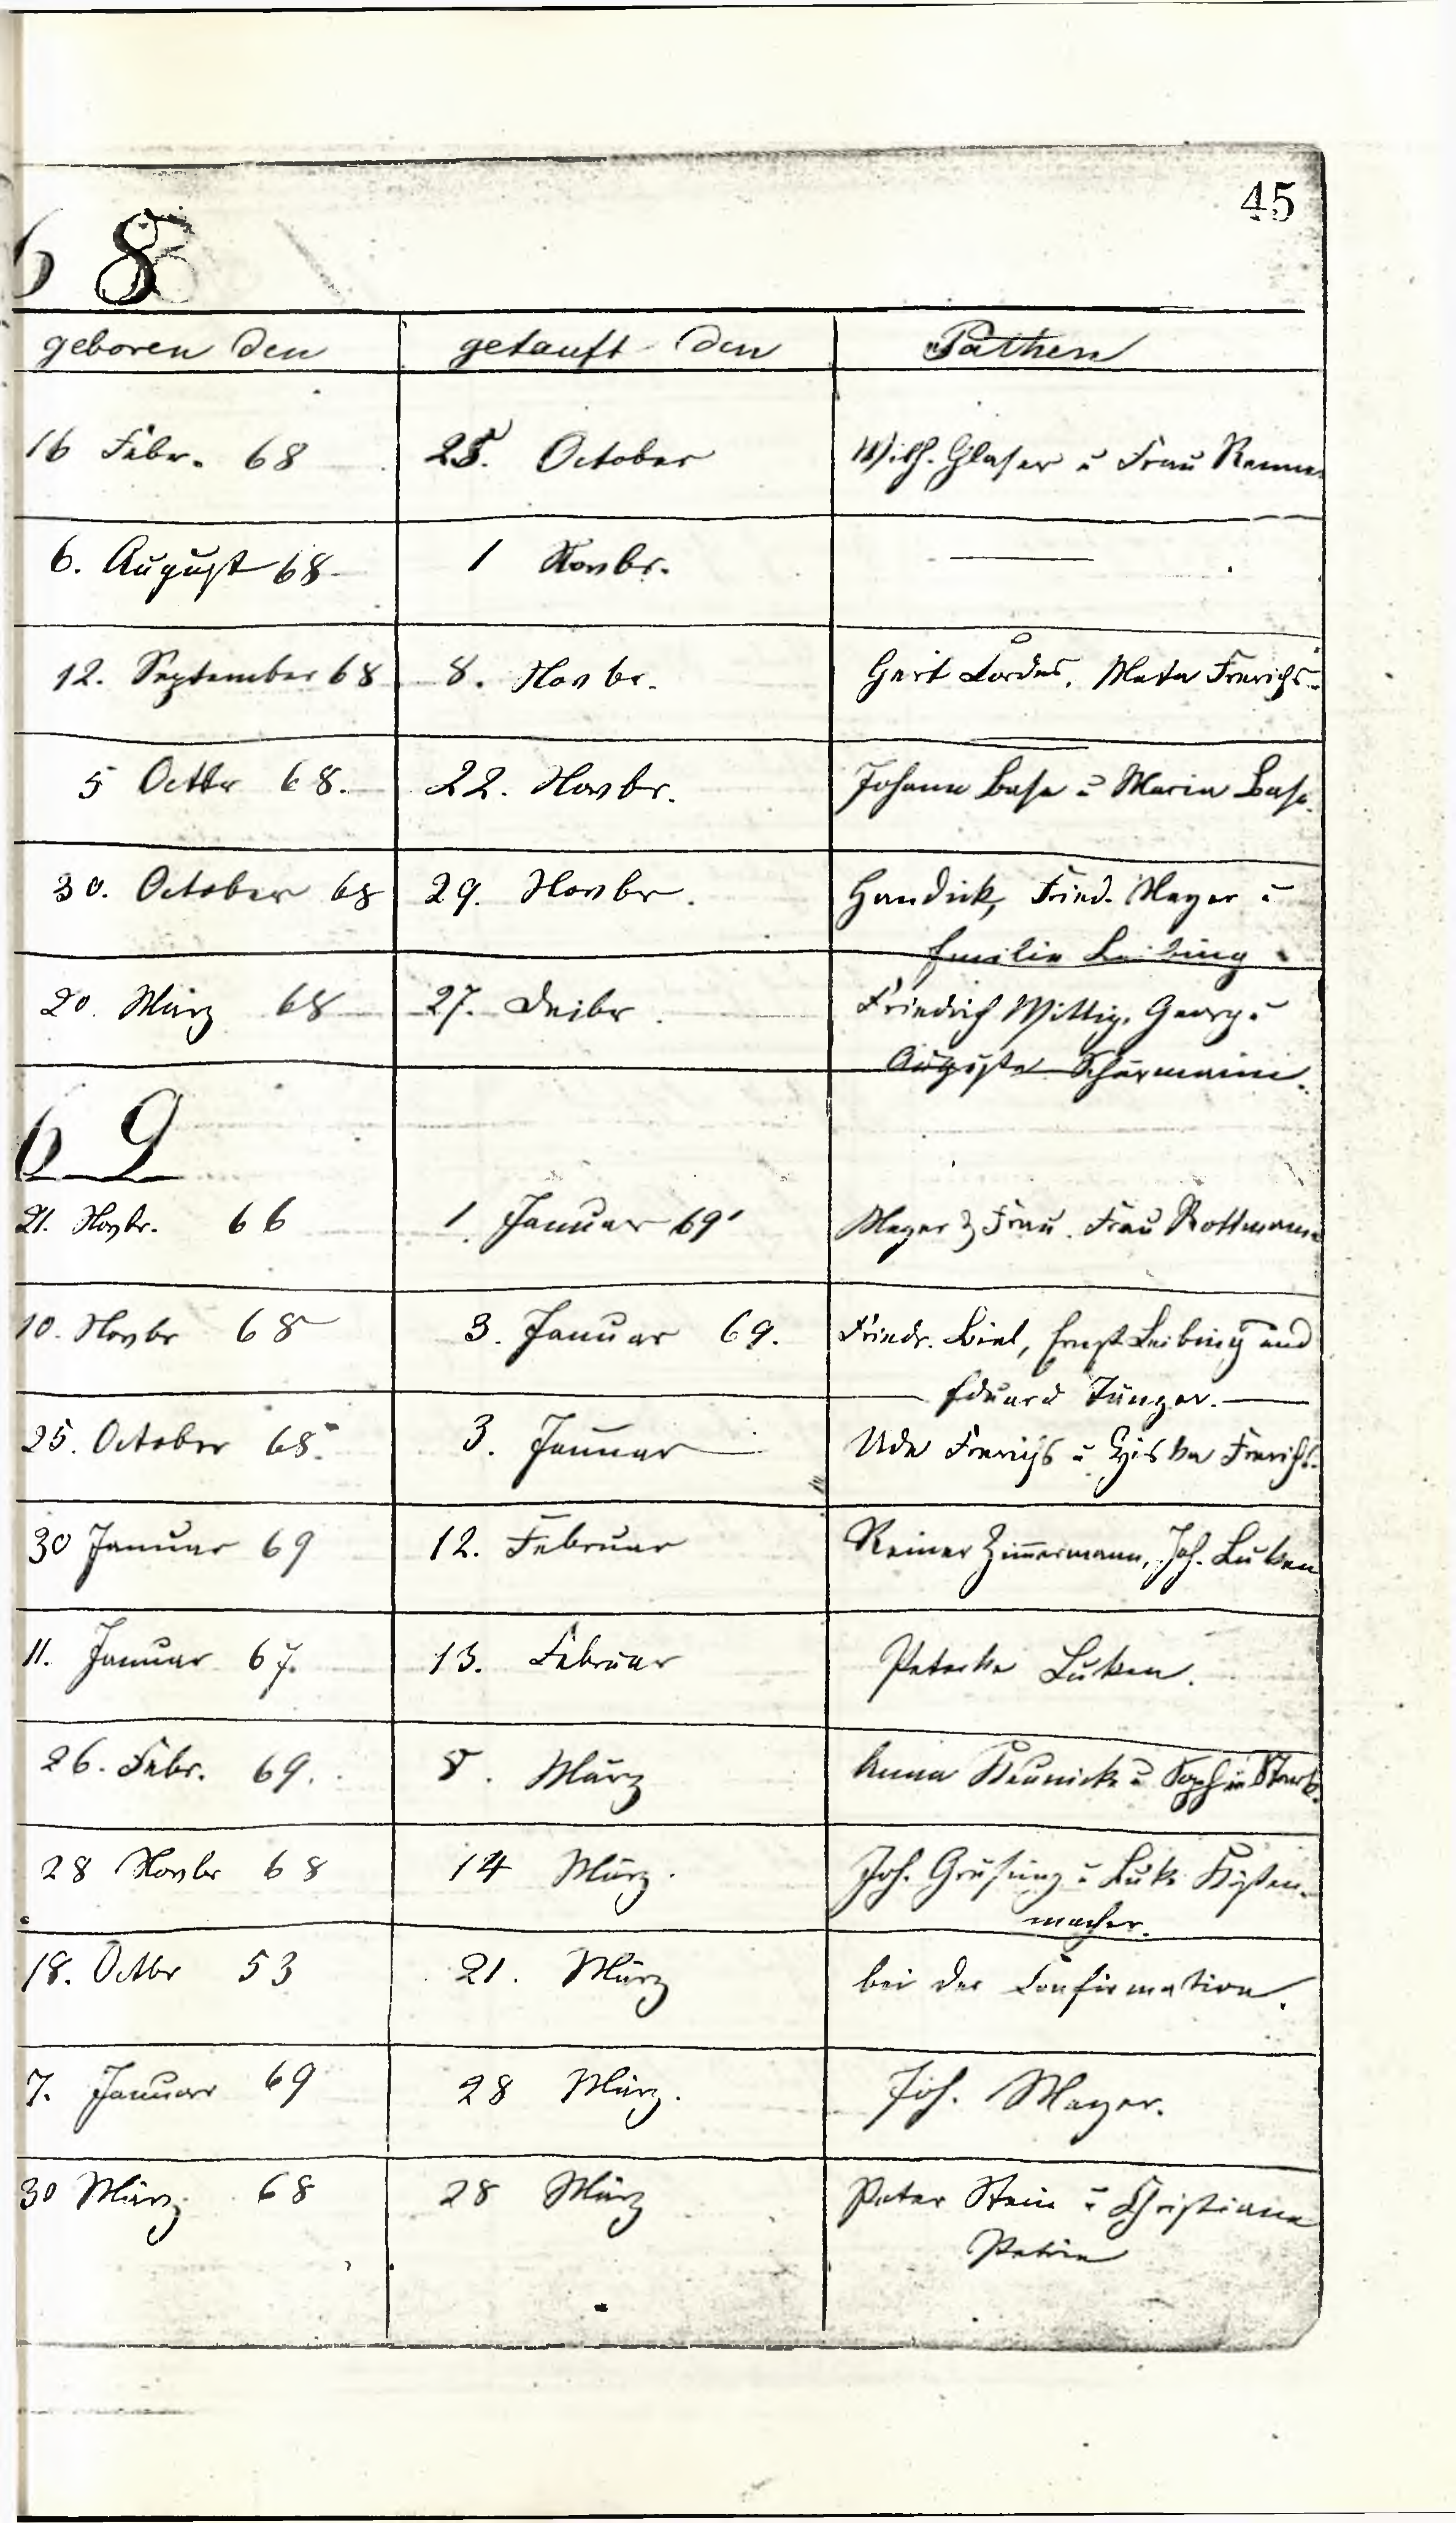 45
68
geboren den getauft den Pathen
16 Febr. 68 25. October Wilh. Glaser u Frau Remme
6. August 68 1 Novbr.
12. September 68 8. Novbr. Gert Cordes, Meta Frerichs
5 Octbr 68. 22. Novbr. Johann Base u Maria Base.
30. October 68 29. Novbr. Fried. Meyer u
Emilie Leibing
20. März 68 27. Dezbr. Friedrich Wittig, Georg u
Auguste
69
21. Novbr. 66 1 Januar 69 Meyer & Frau. Frau Rottmann
10. Novbr 68 3. Januar 69. Friedr. Biel, Ernst Leibing und
Eduard Jünger.
25. October 68. 3. Januar Ude Frerichs u Frerichs.
30 Januar 69 12. Februar Reiner Zimmermann, Joh. Luken
11. Januar 67. 13. Februar Luken.
26. Febr. 69. 8. März Anna u Sophie Stark.
28 Novbr 68 14 März. Joh. Grüsing u Luke Kysten-
macher.
18. Octbr 53 21. März bei der Confirmation.
7. Januar 69 28 März. Joh. Meyer.
30 März 68 28 März Peter Stein u Christiane
Petrie